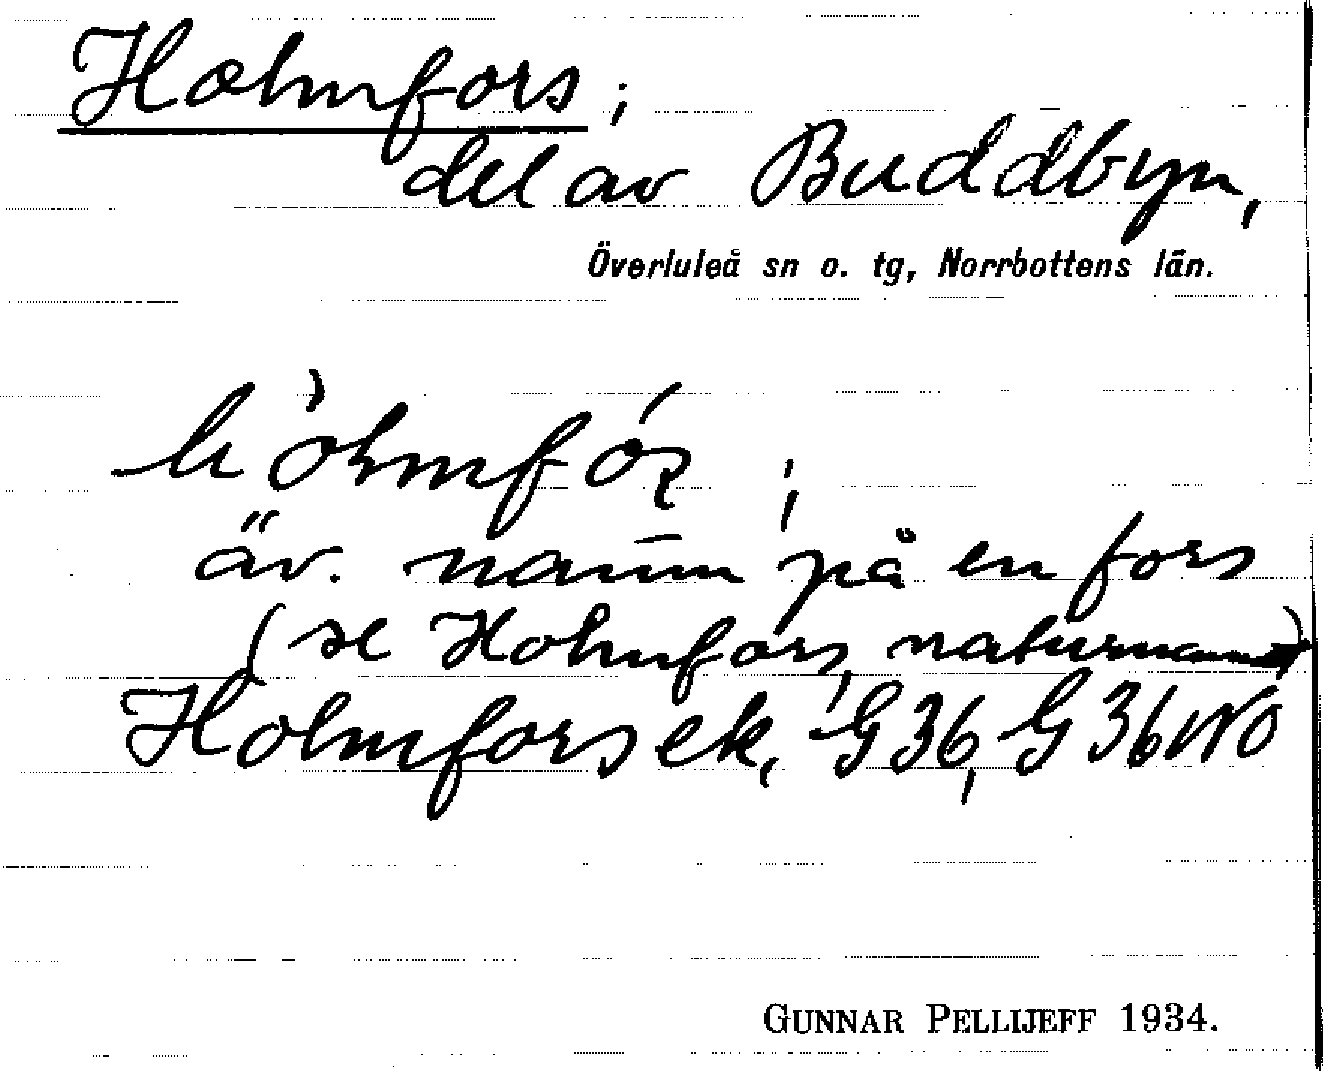 Holmfors;
del av Buddbyn,
Överluleå sn o. tg, Norrbottens län.
äv. namn på en fors
(se Holmfors, naturnamn)
Holmfors ek, G36, G36NO
GUNNAR PELLIJEFF 1934.